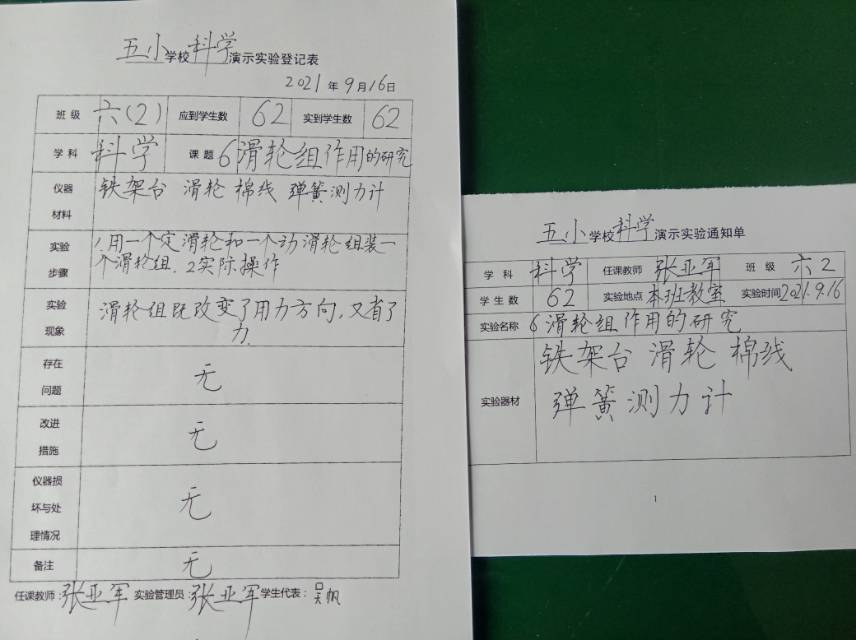 五小学校科学演示实验登记表
2021年9月16日
班级 六(2) 应到学生数 62 实到学生数 62
学科 科学 课题 6滑轮组作用的研究
仪器材料 铁架台 滑轮 棉线 弹簧测力计
实验步骤 1.用一个定滑轮和一个动滑轮组装一
个滑轮组.2实际操作
实验现象 滑轮组既改变了用力方向,又省了
力.
存在问题 无
改进措施 无
仪器损坏与处理情况 无
备注 无
任课教师:张亚军 实验管理员:张亚军 学生代表:吴帆
五小学校科学演示实验通知单
学科 科学 任课教师 张亚军 班级 六2
学生数 62 实验地点 本班教室 实验时间 2021.9.16
实验名称 6滑轮组作用的研究
实验器材 铁架台 滑轮 棉线
弹簧测力计
1